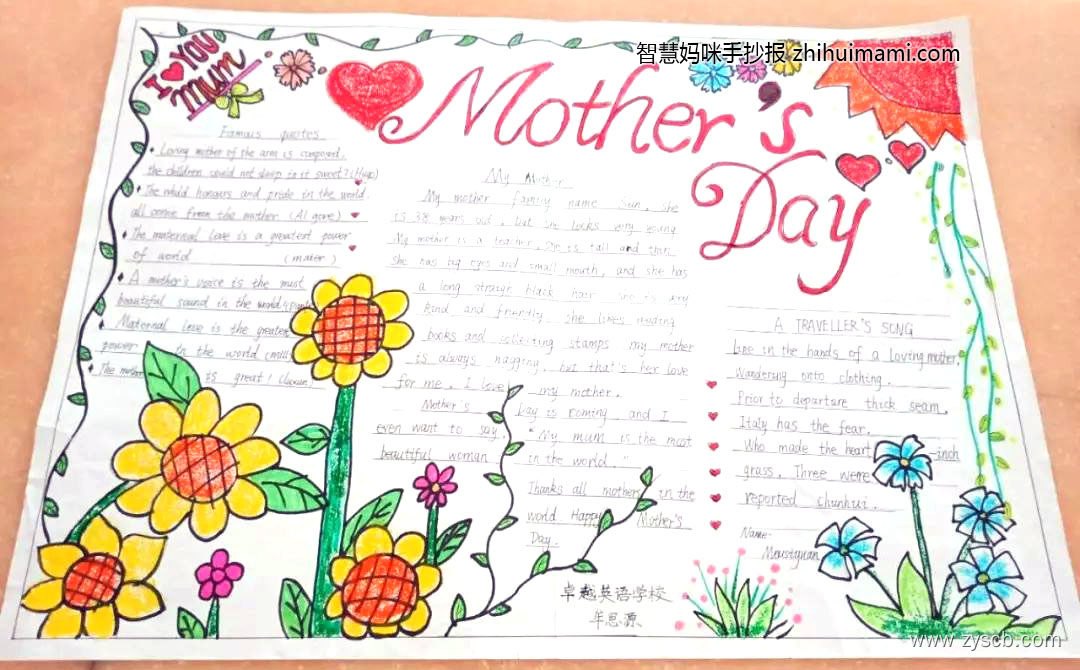 智慧妈咪手抄报 zhihuimami.com
I YOU
MUM
Mother's
Day
Famous quotes
Loving mother of the arm is composed,
the children could not sleep in it sweet? (Hugo)
The world honours and pride in the world.
all come from the mother (Al gore)
The maternal love is a greatest power
of world
A mother's voice is the most
beautiful sound in the world
Maternal love is the greatest
power in the world
The mother is great!
My Mother
My mother family name Sun, she
is 38 years old, but she looks very young
My mother is a teacher, she is tall and thin,
she has big eyes and small mouth, and she has
a long black hair she is very
kind and friendly. She likes reading
books and collecting stamps my mother
is always nagging, but that's her love
for me, I love my mother.
Mother's Day is coming, and I
even want to say, "My mum is the most
beautiful woman in the world."
Thanks all mothers in the
world Happy Mother's
Day.
A TRAVELLER'S SONG
Line in the hands of a loving mother,
Wandering onto clothing.
Prior to departure thick seam,
Italy has the fear.
Who made the heart -inch
grass, Three were
reported chunhui.
Name:
卓越英语学校
牟思源
www.zyscb.com